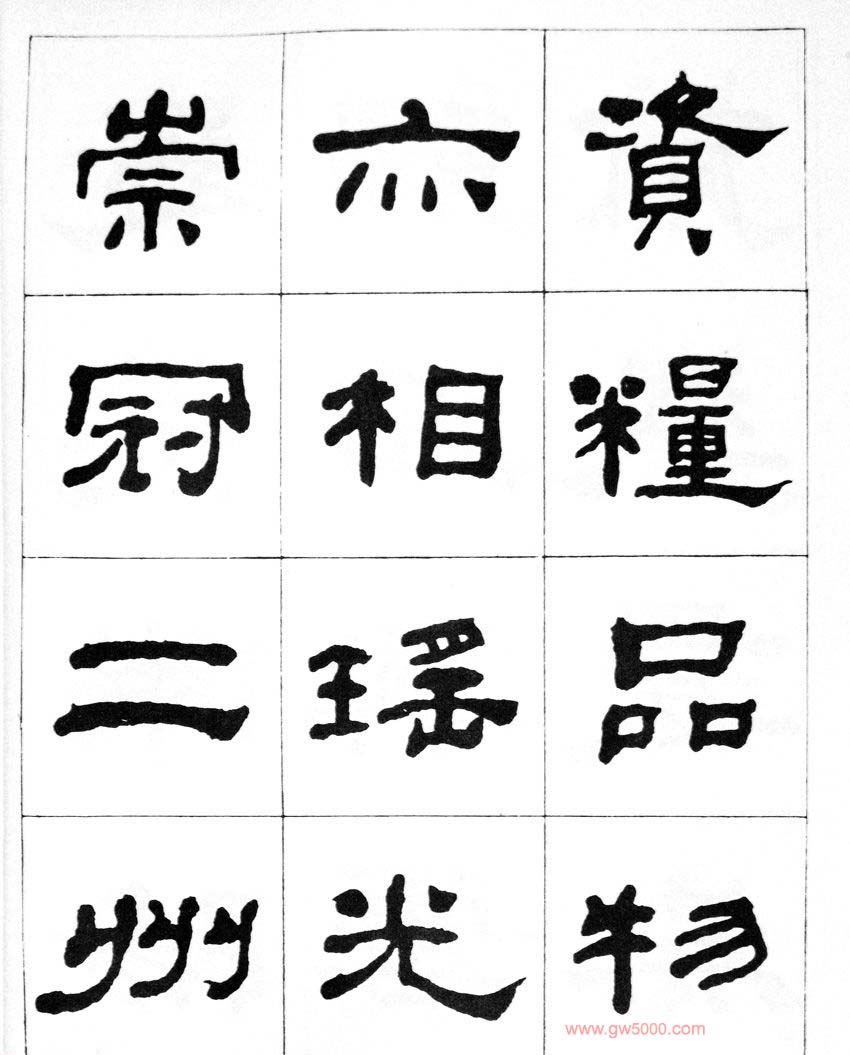 資糧品物
亦相瑤光
崇冠二州
www.gw5000.com